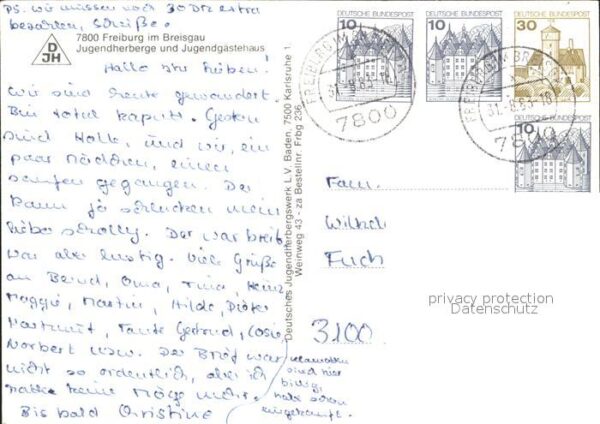 PS. wir müssen noch 30 DM extra
bezahlen, Scheiße.
DJH
7800 Freiburg im Breisgau
Jugendherberge und Jugendgästehaus
Hallo Ihr Lieben!
wir sind heute gewandert.
Bin total kaputt. Gestern
sind Halle, und wir, ein
paar Mädchen, einen
saufen gegangen. Der
kann ja schlucken mein
lieber Scholly. Der war breit
war aber lustig. Viele Grüße
an Bernd, Oma, Tina, Heinz
Maggie, Martin, Hilde, Dieter
Hartmut, Tante Gertrud,
Norbert usw. Der Brief war
nicht so ordentlich, aber ich
hatte keine Möge mehr.
Bis bald Christine
Klamotten
sind hier
billig,
habe schon
eingekauft.
Deutsches Jugendherbergswerk L.V. Baden, 7500 Karlsruhe 1,
Weinweg 43 - za Bestellnr. Frbg 236
10
DEUTSCHE BUNDESPOST
10
DEUTSCHE BUNDESPOST
30
DEUTSCHE BUNDESPOST
10
DEUTSCHE BUNDESPOST
FREIBURG IM BREISGAU
31.-8.83-18
7800
FREIBURG IM BREISGAU
31.-8.83-18
7800
Fam.
Fuch
3100
privacy protection
Datenschutz